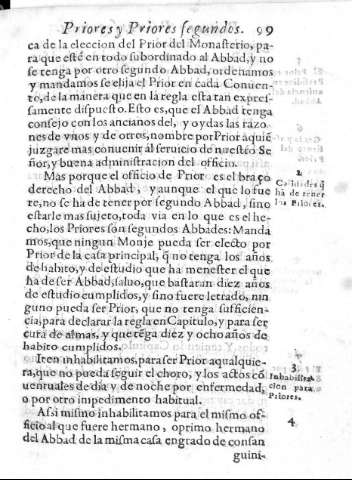 Priores y Priores segundos. 99
ca de la eleccion del Prior del Monasterio, pa-
ra que esté en todo subordinado al Abbad, y no
se tenga por otro segundo Abbad, ordenamos
y mandamos se elija el Prior en cada Conuen-
to, de la manera que en la regla esta tan expres-
samente dispuesto. Esto es, que el Abbad tenga
consejo con los ancianos del, y oydas las razo-
nes de vnos y de otros, nombre por Prior aquiē
juzgare mas conuenir al seruicio de nuestro Se
ñor, y buena administracion del officio.
Mas porque el officio de Prior es el braço
derecho del Abbad, y aunque el que lo fue
re, no se ha de tener por segundo Abbad, sino
estarle mas sujeto, toda via en lo que es el he-
cho, los Priores son segundos Abbades: Manda
mos, que ningun Monje pueda ser electo por
Prior de la casa principal, q̄ no tenga los años
de habito, y de estudio que ha menester el que
ha de ser Abbad, saluo, que bastaran diez años
de estudio cumplidos, y sino fuere letrado, nin
guno pueda ser Prior, que no tenga sufficien-
cia, para declarar la regla en Capitulo, y para ser
cura de almas, y que tēga diez y ocho años de
habito cumplidos.
Iten inhabilitamos, para ser Prior a qualquie-
ra, que no pueda seguir el choro, y los actos cō
uentuales de dia y de noche por enfermedad,
o por otro impedimento habitual.
Assi mismo inhabilitamos para el mismo of-
ficio al que fuere hermano, o primo hermano
del Abbad de la misma casa en grado de consan
guini-
2.
Calidades q̄
ha de tener
los Priores.
3.
Inhabilita
cion para
Priores.
4.